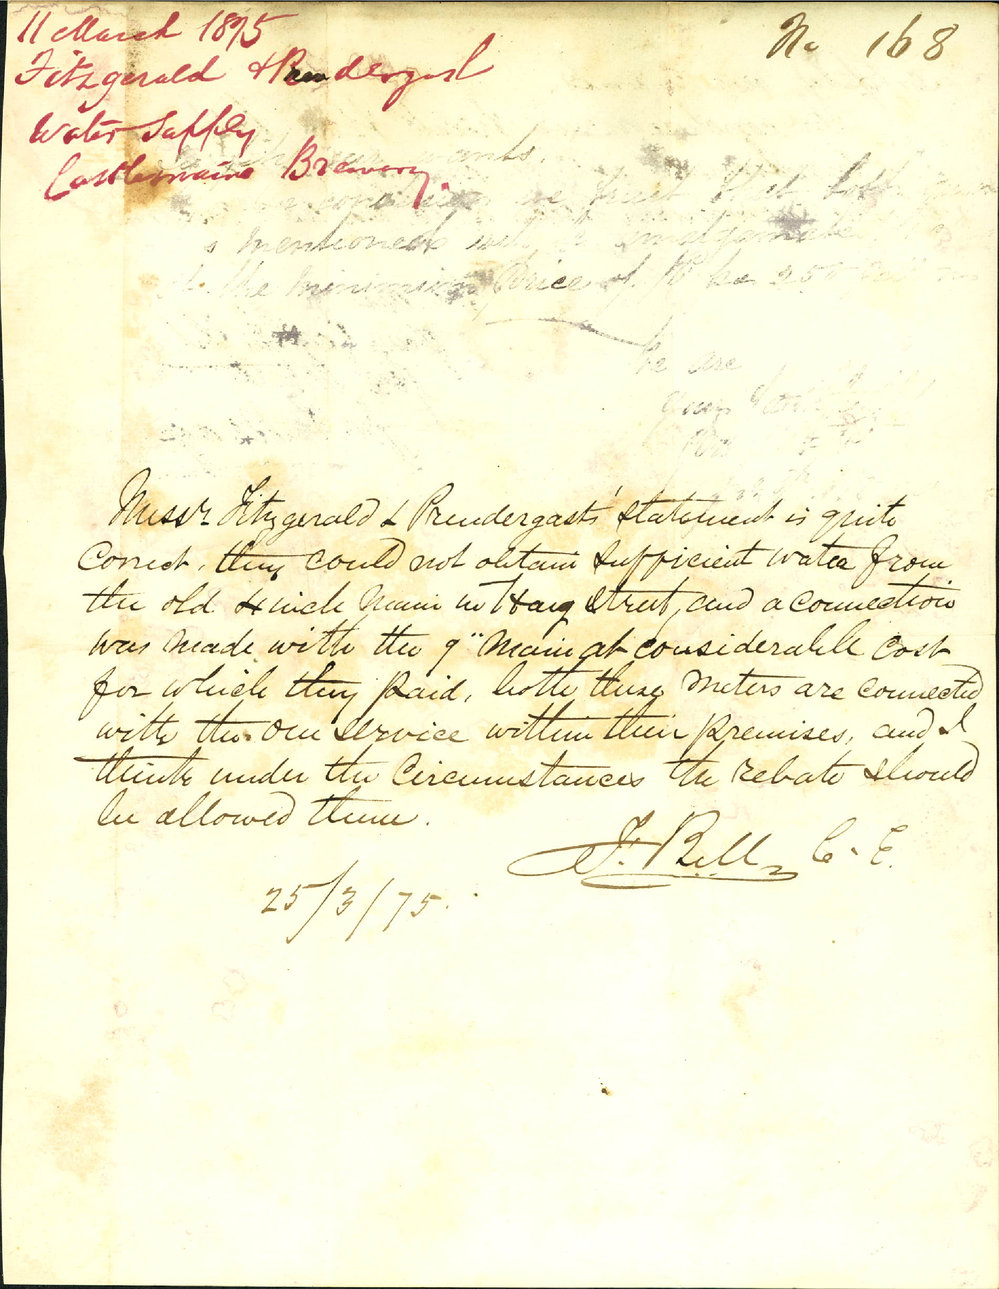 11 March 1875
Fitzgerald & Prendergast
Water Supply
Castlemaine Brewery.
No 168
wants.
trust that both
mentioned will be amalgamated
the minimum Price
We are
Messrs Fitzgerald & Prendergasts' statement is quite
correct, they could not obtain sufficient water from
the old 4 inch Main in Haig Street, and a connection
was made with the 9" Main at considerable cost
for which they paid, both these Meters are connected
with the one service within their premises, and I
think under the circumstances the rebate should
be allowed them.
F. Bell C. E.
25/3/75.